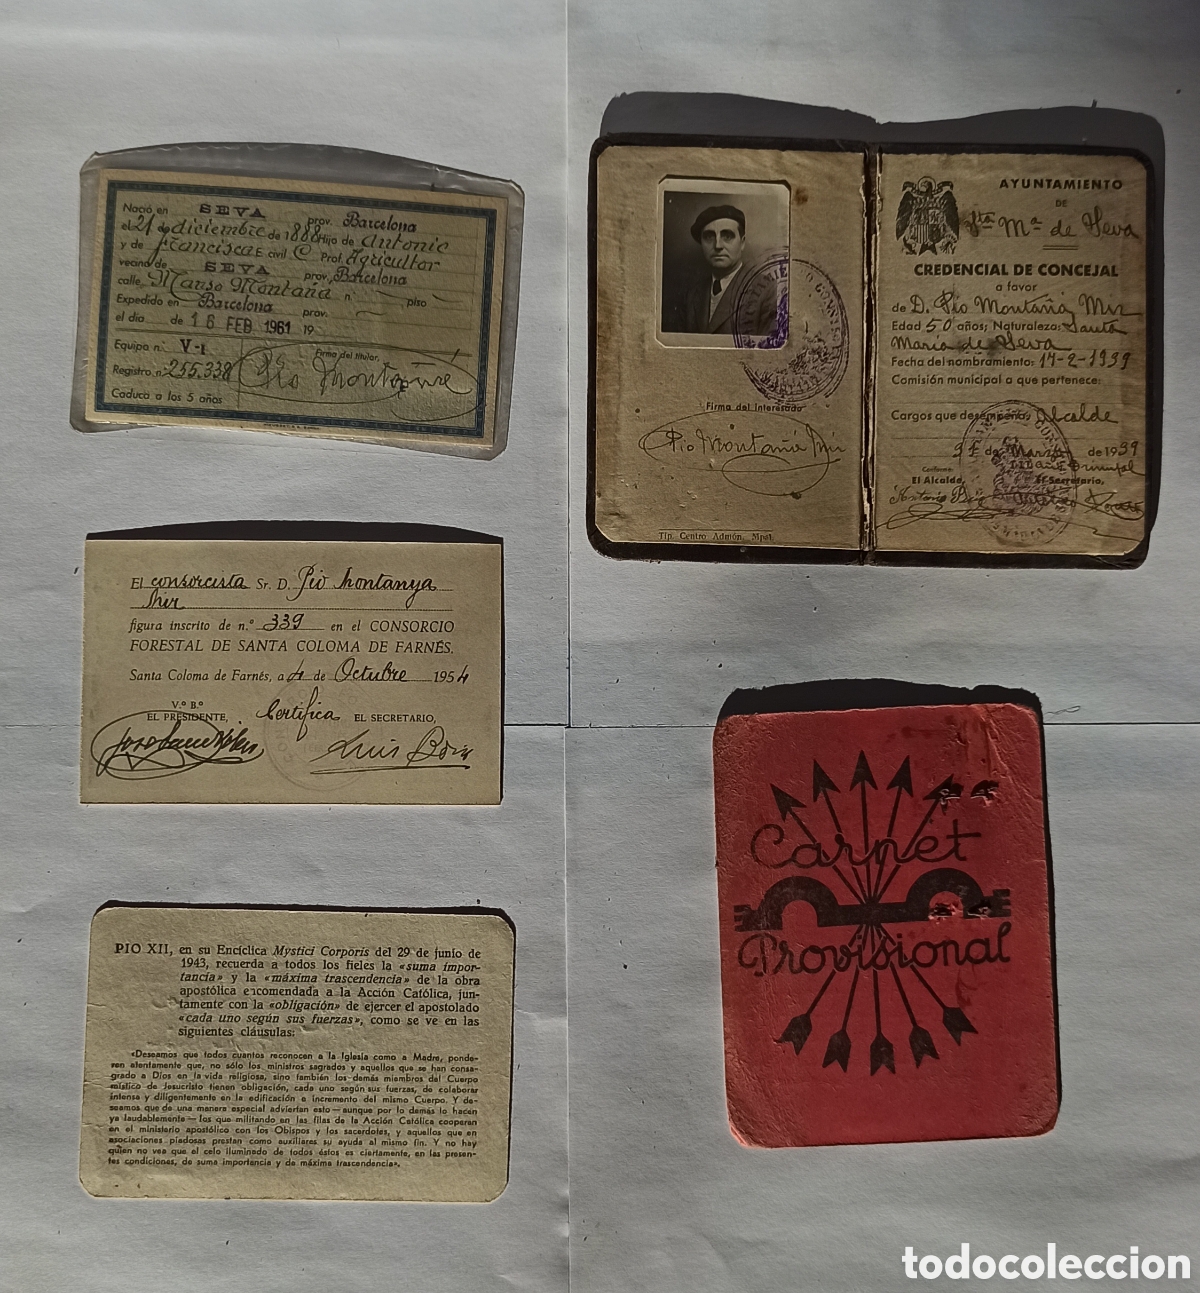 Nació en SEVA prov. Barcelona
el 21 de diciembre de 1888 Hijo de Antonio
y de Francisca E. civil C Prof. Agricultor
vecino de SEVA prov. Barcelona
calle Manso Montañá n. piso
Expedido en Barcelona prov.
el día de 16 FEB 1961 19
Equipo n. V-1
Firma del titular,
Registro n. 255.338
Pío Montañá
Caduca a los 5 años
AYUNTAMIENTO
DE
Sta Mª de Seva
CREDENCIAL DE CONCEJAL
a favor
de D. Pío Montañá Mir
Edad 50 años; Naturaleza: Santa
María de Seva
Fecha del nombramiento: 17-2-1939
Comisión municipal a que pertenece:
Cargos que desempeña: Alcalde
31 de Marzo de 1939
Conforme:
El Alcalde, El Secretario,
Firma del Interesado
Pío Montañá Mir
Tip. Centro Admón. Mpal.
El consorcista Sr. D. Pío Montanya
Mir
figura inscrito de n.º 339 en el CONSORCIO
FORESTAL DE SANTA COLOMA DE FARNÉS.
Santa Coloma de Farnés, a 4 de Octubre 1954
V.º B.º
EL PRESIDENTE, Certifica EL SECRETARIO,
PIO XII, en su Encíclica Mystici Corporis del 29 de junio de
1943, recuerda a todos los fieles la «suma impor-
tancia» y la «máxima trascendencia» de la obra
apostólica encomendada a la Acción Católica, jun-
tamente con la «obligación» de ejercer el apostolado
«cada uno según sus fuerzas», como se ve en las
siguientes cláusulas:
«Deseamos que todos cuantos reconocen a la Iglesia como a Madre, ponde-
ren atentamente que, no sólo los ministros sagrados y aquellos que se han consa-
grado a Dios en la vida religiosa, sino también los demás miembros del Cuerpo
místico de Jesucristo tienen obligación, cada uno según sus fuerzas, de colaborar
intensa y diligentemente en la edificación e incremento del mismo Cuerpo. Y de-
seamos que de una manera especial adviertan esto—aunque por lo demás lo hacen
ya laudablemente—los que militando en las filas de la Acción Católica cooperan
en el ministerio apostólico con los Obispos y los sacerdotes, y aquellos que en
asociaciones piadosas prestan como auxiliares su ayuda al mismo fin. Y no hay
quien no vea que el celo iluminado de todos éstos es ciertamente, en las presen-
tes condiciones, de suma importancia y de máxima trascendencia».
Carnet
Provisional
todocoleccion